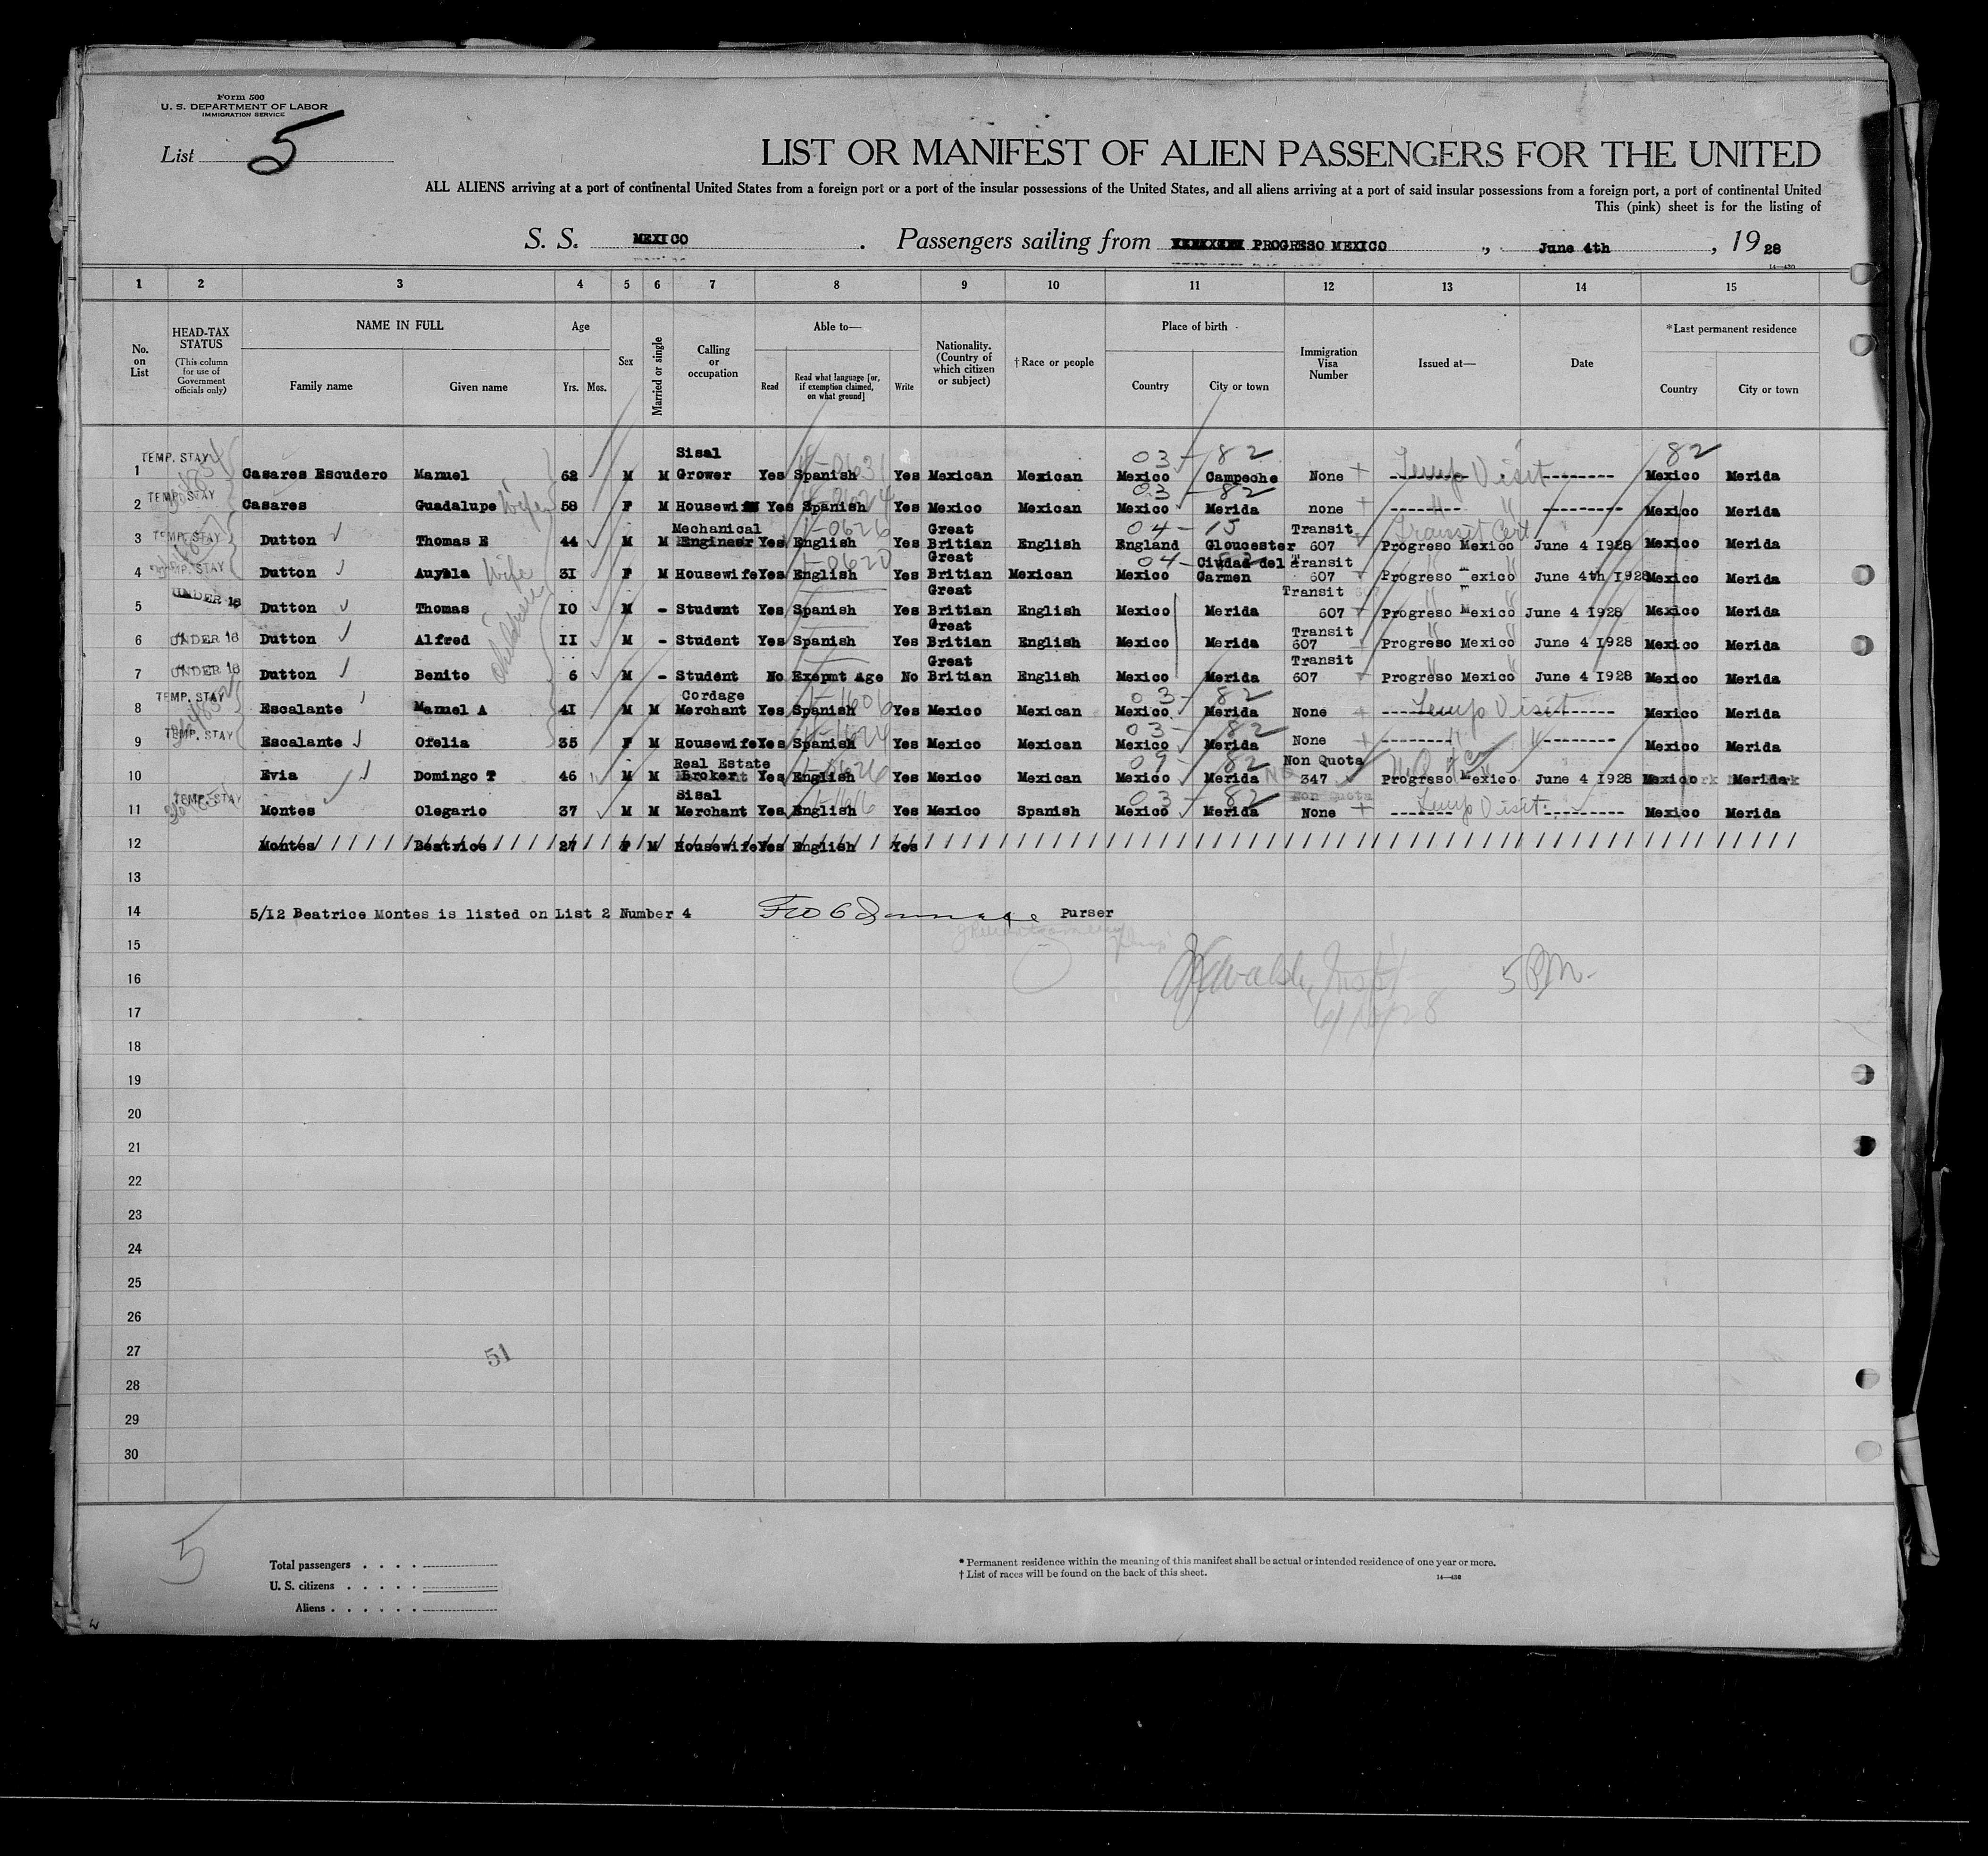 Form 500
U. S. DEPARTMENT OF LABOR
IMMIGRATION SERVICE
List 5
LIST OR MANIFEST OF ALIEN PASSENGERS FOR THE UNITED
ALL ALIENS arriving at a port of continental United States from a foreign port or a port of the insular possessions of the United States, and all aliens arriving at a port of said insular possessions from a foreign port, a port of continental United
This (pink) sheet is for the listing of
S. S. MEXICO . Passengers sailing from PROGRESO MEXICO , June 4th , 1928
14—430
1 2 3 4 5 6 7 8 9 10 11 12 13 14 15
No. on List
HEAD-TAX STATUS (This column for use of Government officials only)
NAME IN FULL
Family name Given name
Age
Yrs. Mos.
Sex
Married or single
Calling or occupation
Able to—
Read Read what language [or, if exemption claimed, on what ground] Write
Nationality. (Country of which citizen or subject)
†Race or people
Place of birth
Country City or town
Immigration Visa Number
Issued at—
Date
*Last permanent residence
Country City or town
1 TEMP. STAY Casares Escudero Manuel 62 M M Sisal Grower Yes Spanish Yes Mexican Mexican Mexico Campeche 03-82 None Temp Visit 82 Mexico Merida
2 TEMP. STAY Casares Guadalupe wife 58 F M Housewif Yes Spanish Yes Mexico Mexican Mexico Merida 03-82 none " " Mexico Merida
3 TEMP. STAY Dutton Thomas E 44 M M Mechanical Engineer Yes English Yes Great Britian English England Gloucester 04-15 Transit 607 Transit Cert Progreso Mexico June 4 I928 Mexico Merida
4 TEMP. STAY Dutton wife 3I F M Housewife Yes English Yes Great Britian Mexican Mexico Ciudad del Carmen Transit 607 Progreso Mexico June 4th I928 Mexico Merida
5 UNDER 16 Dutton Thomas children I0 M - Student Yes Spanish Yes Great Britian English Mexico Merida Transit 607 Progreso Mexico June 4 I928 Mexico Merida
6 UNDER 16 Dutton Alfred II M - Student Yes Spanish Yes Great Britian English Mexico Merida Transit 607 Progreso Mexico June 4 I928 Mexico Merida
7 UNDER 16 Dutton Benito 6 M - Student No Exepmt Age No Great Britian English Mexico Merida Transit 607 Progreso Mexico June 4 I928 Mexico Merida
8 TEMP. STAY Escalante Manuel A 4I M M Cordage Merchant Yes Spanish Yes Mexico Mexican Mexico Merida 03-82 None Temp Visit Mexico Merida
9 TEMP. STAY Escalante Ofelia 35 F M Housewife Yes Spanish Yes Mexico Mexican Mexico Merida 03-82 None " " Mexico Merida
10 Evia Domingo T 46 M M Real Estate Broker Yes English Yes Mexico Mexican Mexico Merida 09-82 Non Quota 347 Progreso Mexico June 4 I928 Mexico Merida
11 TEMP. STAY Montes Olegario 37 M M Sisal Merchant Yes English Yes Mexico Spanish Mexico Merida 03-82 None Temp Visit Mexico Merida
12 Montes Beatrice 27 F M Housewife Yes English Yes
13
14 5/I2 Beatrice Montes is listed on List 2 Number 4 Purser
15
16 5 PM
17
18
19
20
21
22
23
24
25
26
27 51
28
29
30
5
Total passengers
U. S. citizens
Aliens
* Permanent residence within the meaning of this manifest shall be actual or intended residence of one year or more.
† List of races will be found on the back of this sheet.
14—430